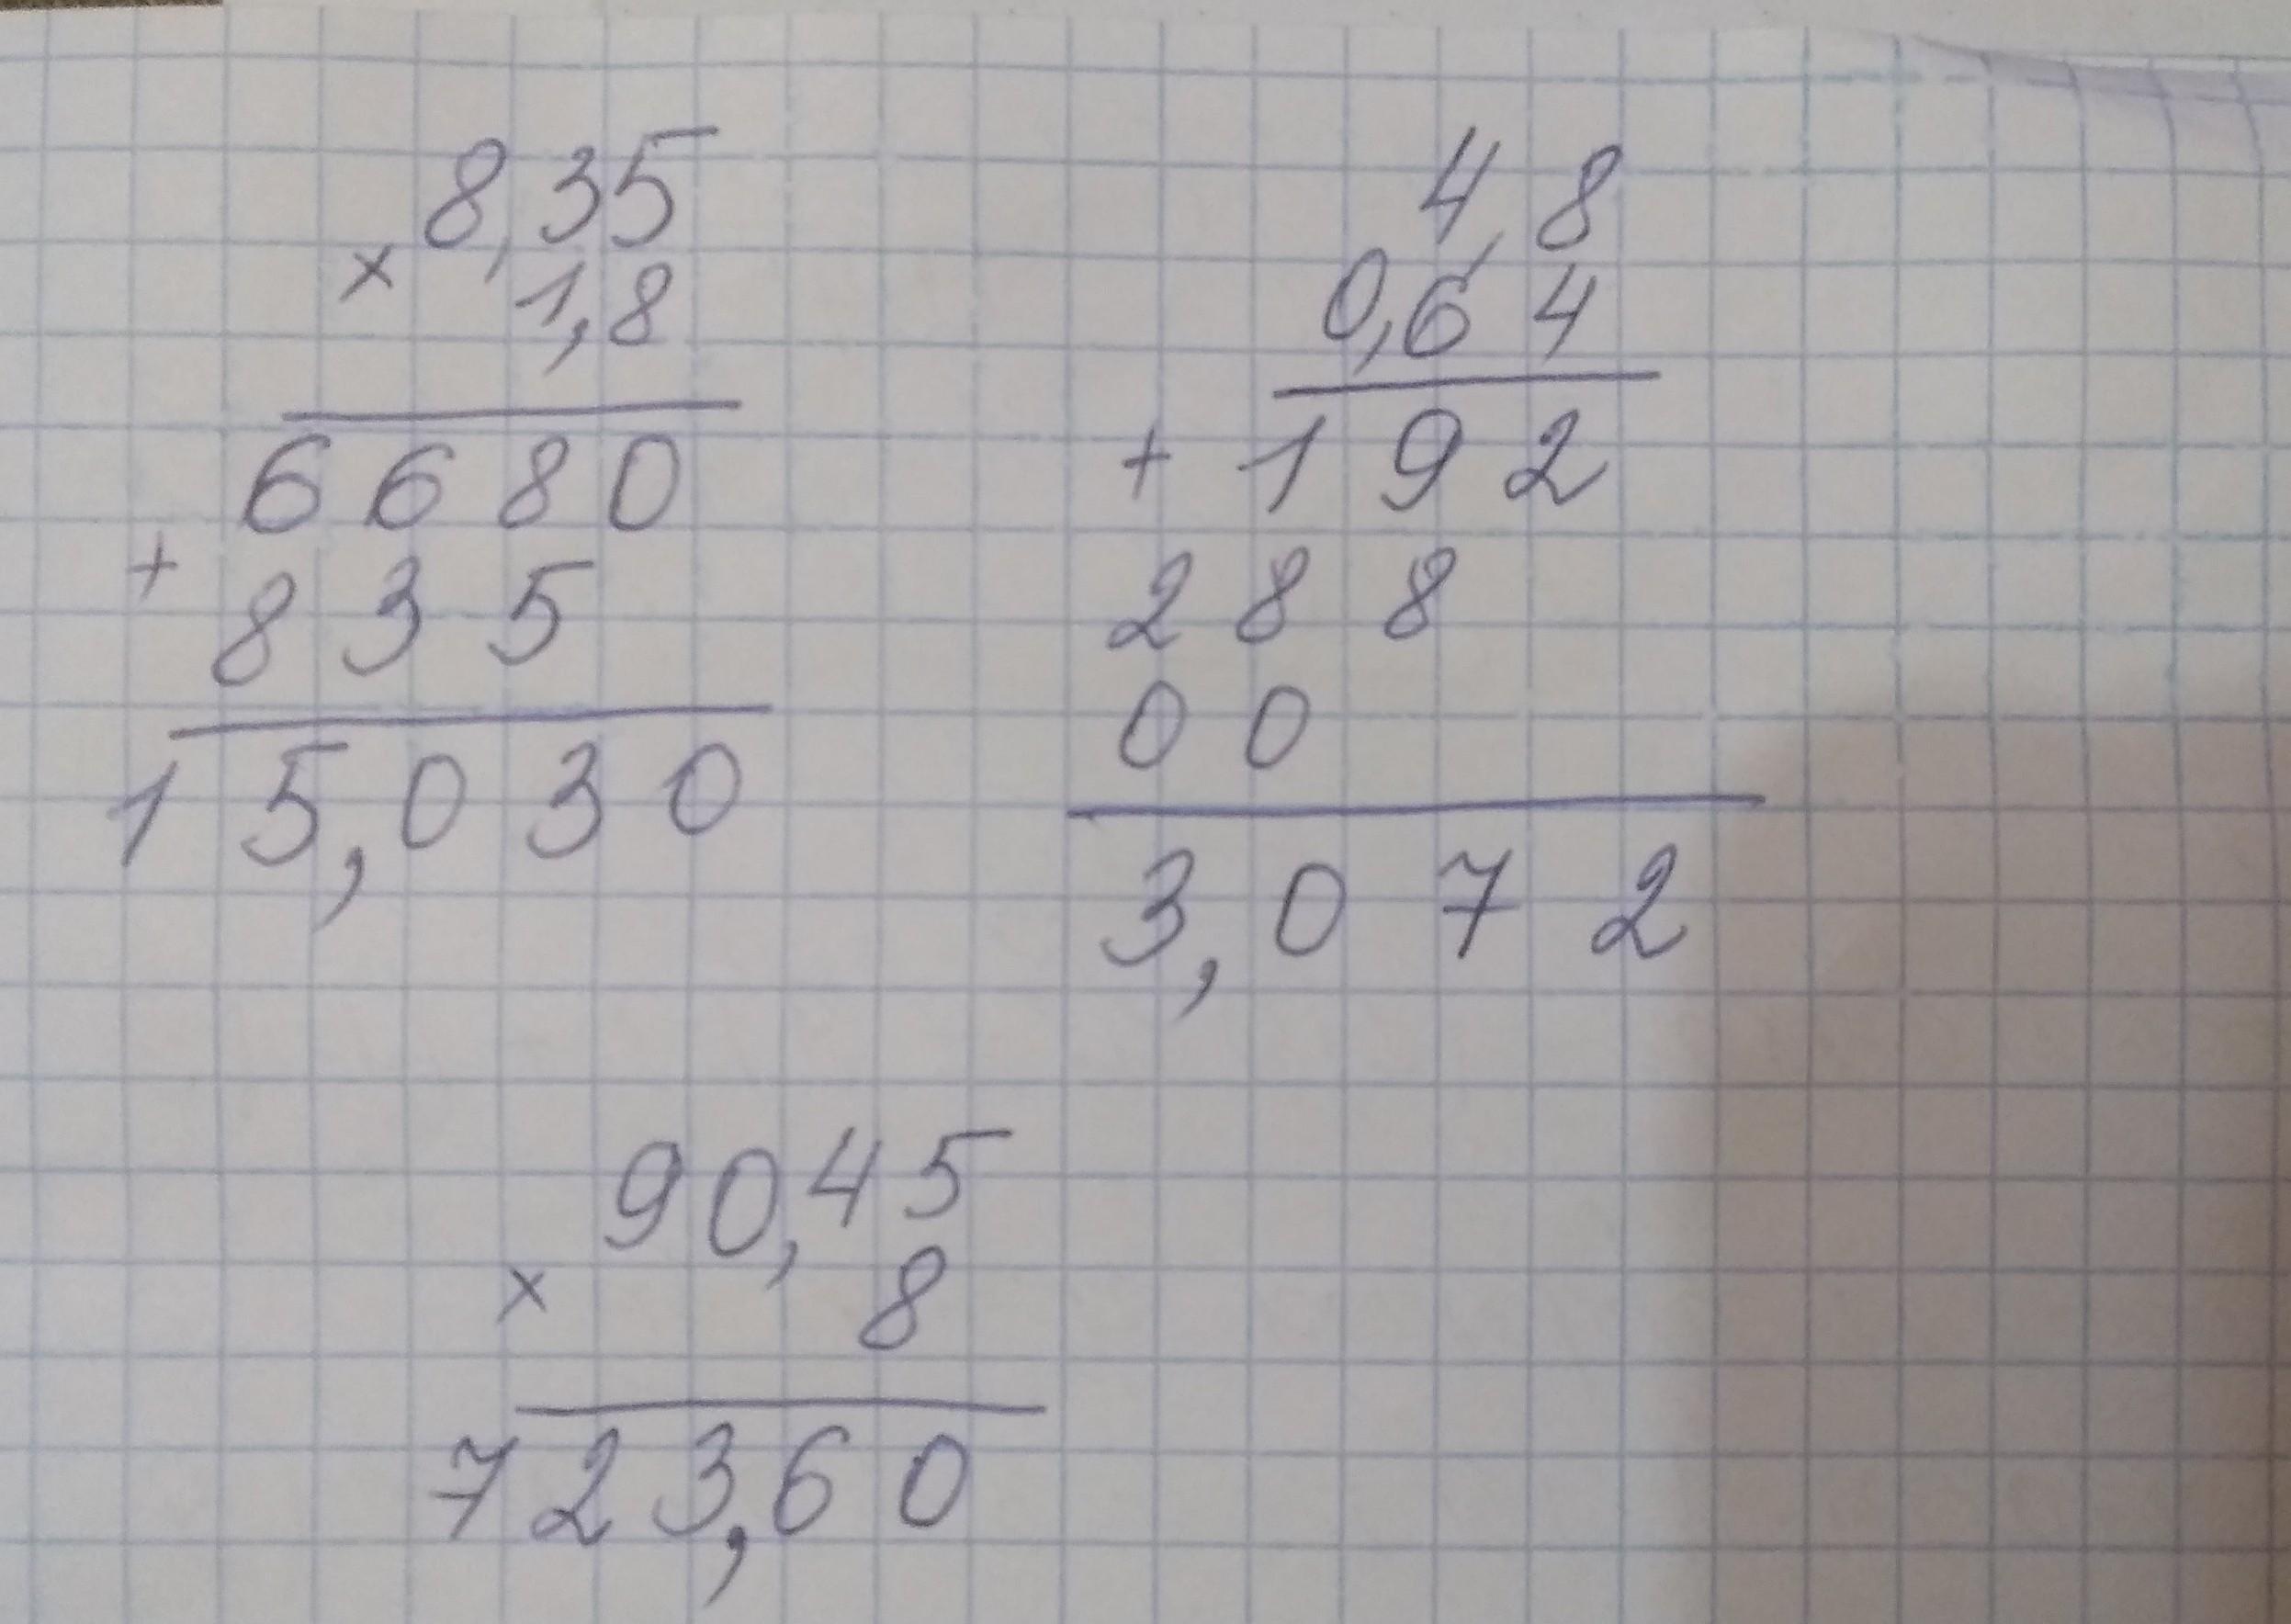 8,35
× 1,8
6680
+ 835
15,030
4,8
0,64
+ 192
288
00
3,072
90,45
× 8
723,60